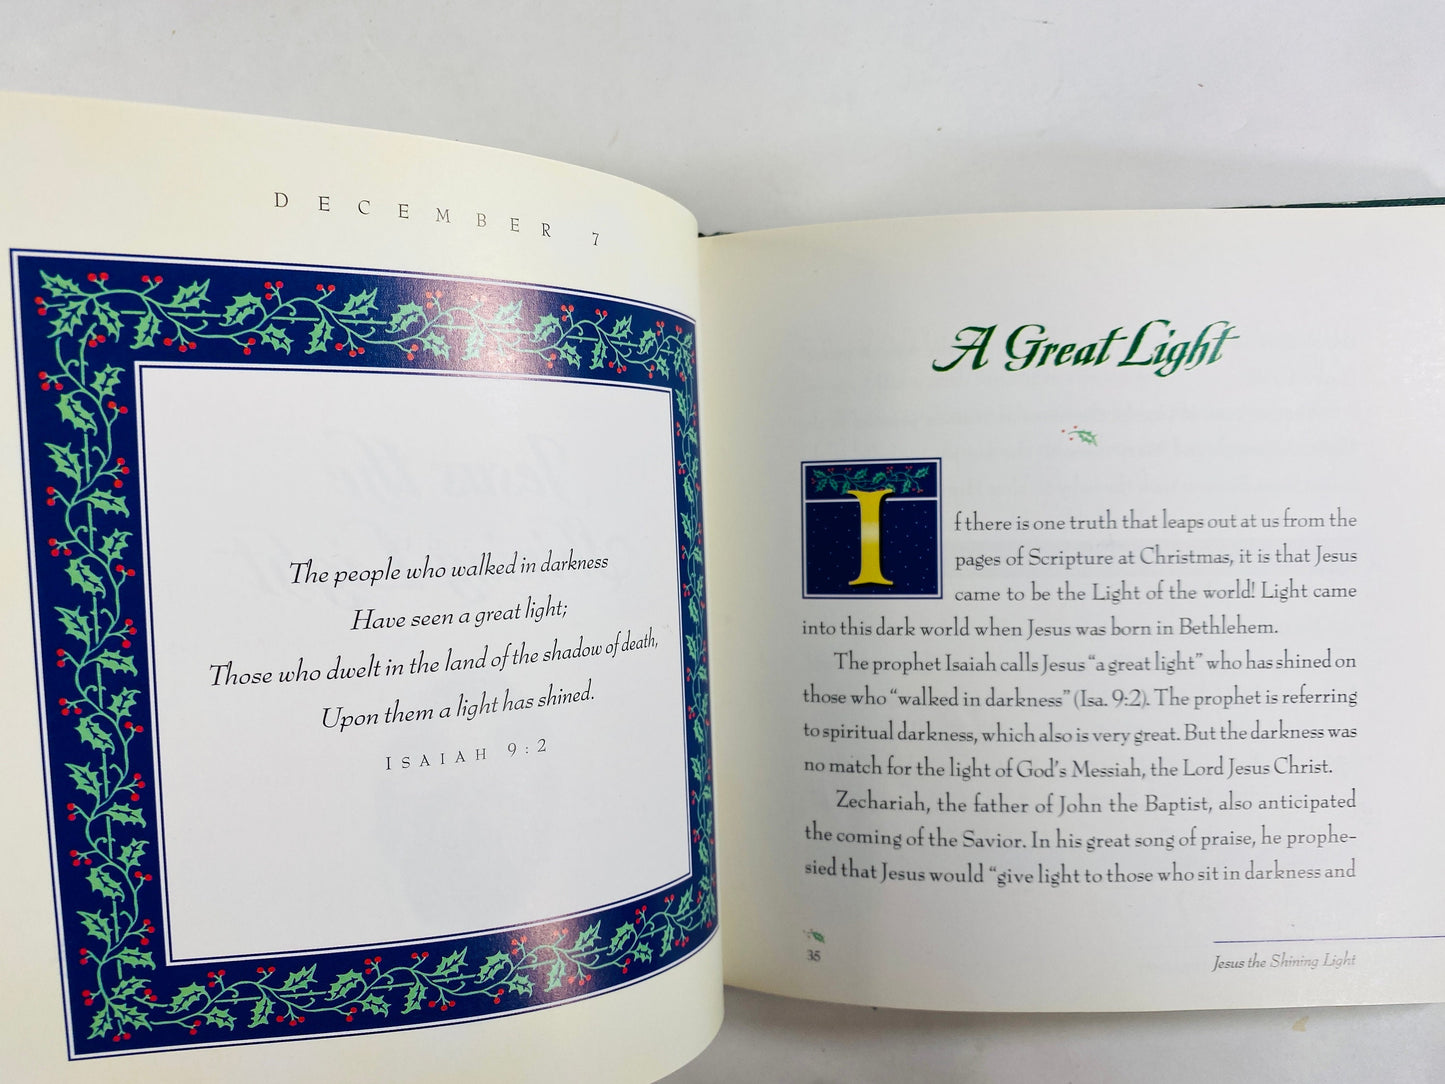 DECEMBER 7
The people who walked in darkness
Have seen a great light;
Those who dwelt in the land of the shadow of death,
Upon them a light has shined.
ISAIAH 9:2
A Great Light
If there is one truth that leaps out at us from the
pages of Scripture at Christmas, it is that Jesus
came to be the Light of the world! Light came
into this dark world when Jesus was born in Bethlehem.
The prophet Isaiah calls Jesus “a great light” who has shined on
those who “walked in darkness” (Isa. 9:2). The prophet is referring
to spiritual darkness, which also is very great. But the darkness was
no match for the light of God’s Messiah, the Lord Jesus Christ.
Zechariah, the father of John the Baptist, also anticipated
the coming of the Savior. In his great song of praise, he prophe-
sied that Jesus would “give light to those who sit in darkness and
35
Jesus the Shining Light